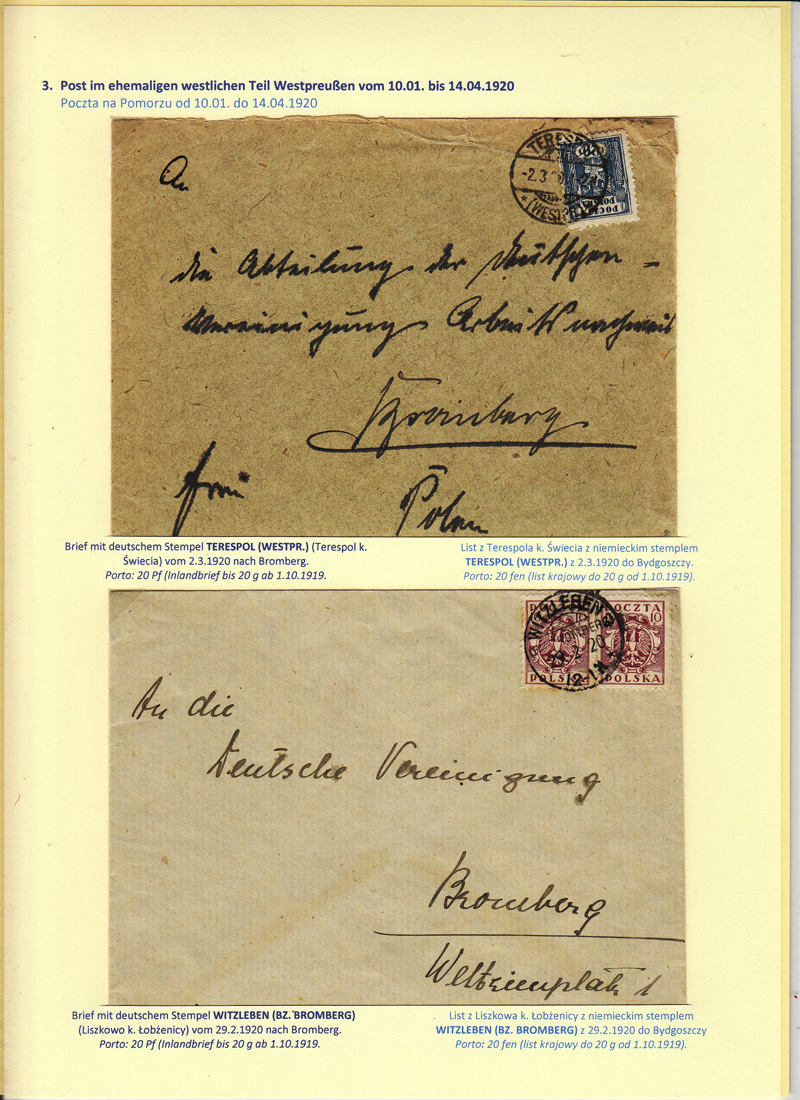 3. Post im ehemaligen westlichen Teil Westpreußen vom 10.01. bis 14.04.1920
Poczta na Pomorzu od 10.01. do 14.04.1920
TERESP
-2.3.
*(WESTPR.)
POCZTA
An
die Abteilung der Deutschen-
Vereinigung Arbeitsnachweis
Bromberg
frei
Polen
Brief mit deutschem Stempel TERESPOL (WESTPR.) (Terespol k.
Świecia) vom 2.3.1920 nach Bromberg.
Porto: 20 Pf (Inlandbrief bis 20 g ab 1.10.1919.
List z Terespola k. Świecia z niemieckim stemplem
TERESPOL (WESTPR.) z 2.3.1920 do Bydgoszczy.
Porto: 20 fen (list krajowy do 20 g od 1.10.1919).
WITZLEBEN
BROMBERG
29 2 20
12-1N
POCZTA
10
POLSKA
POLSKA
An die
Deutsche Vereinigung
Bromberg
Weltzienplatz 1
Brief mit deutschem Stempel WITZLEBEN (BZ. BROMBERG)
(Liszkowo k. Łobżenicy) vom 29.2.1920 nach Bromberg.
Porto: 20 Pf (Inlandbrief bis 20 g ab 1.10.1919.
List z Liszkowa k. Łobżenicy z niemieckim stemplem
WITZLEBEN (BZ. BROMBERG) z 29.2.1920 do Bydgoszczy
Porto: 20 fen (list krajowy do 20 g od 1.10.1919).